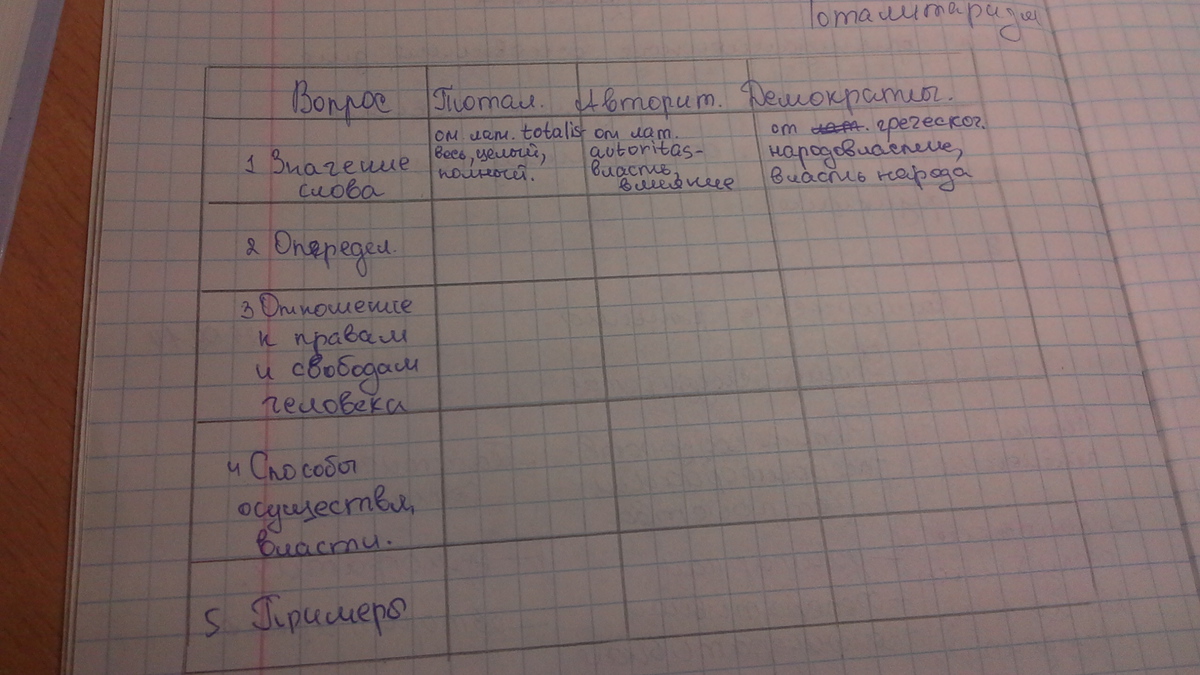 Тоталитаризм
Вопрос
Тотал.
Авторит.
Демократы.
1 Значение
слова
от лат. totalis-
весь, целый,
полный.
от лат.
autoritas-
власть,
влияние
от лат. греческог.
народовластие,
власть народа
2 Определ.
3 Отношение
к правам
и свободам
человека
4 Способы
осуществл.
власти.
5 Примеры